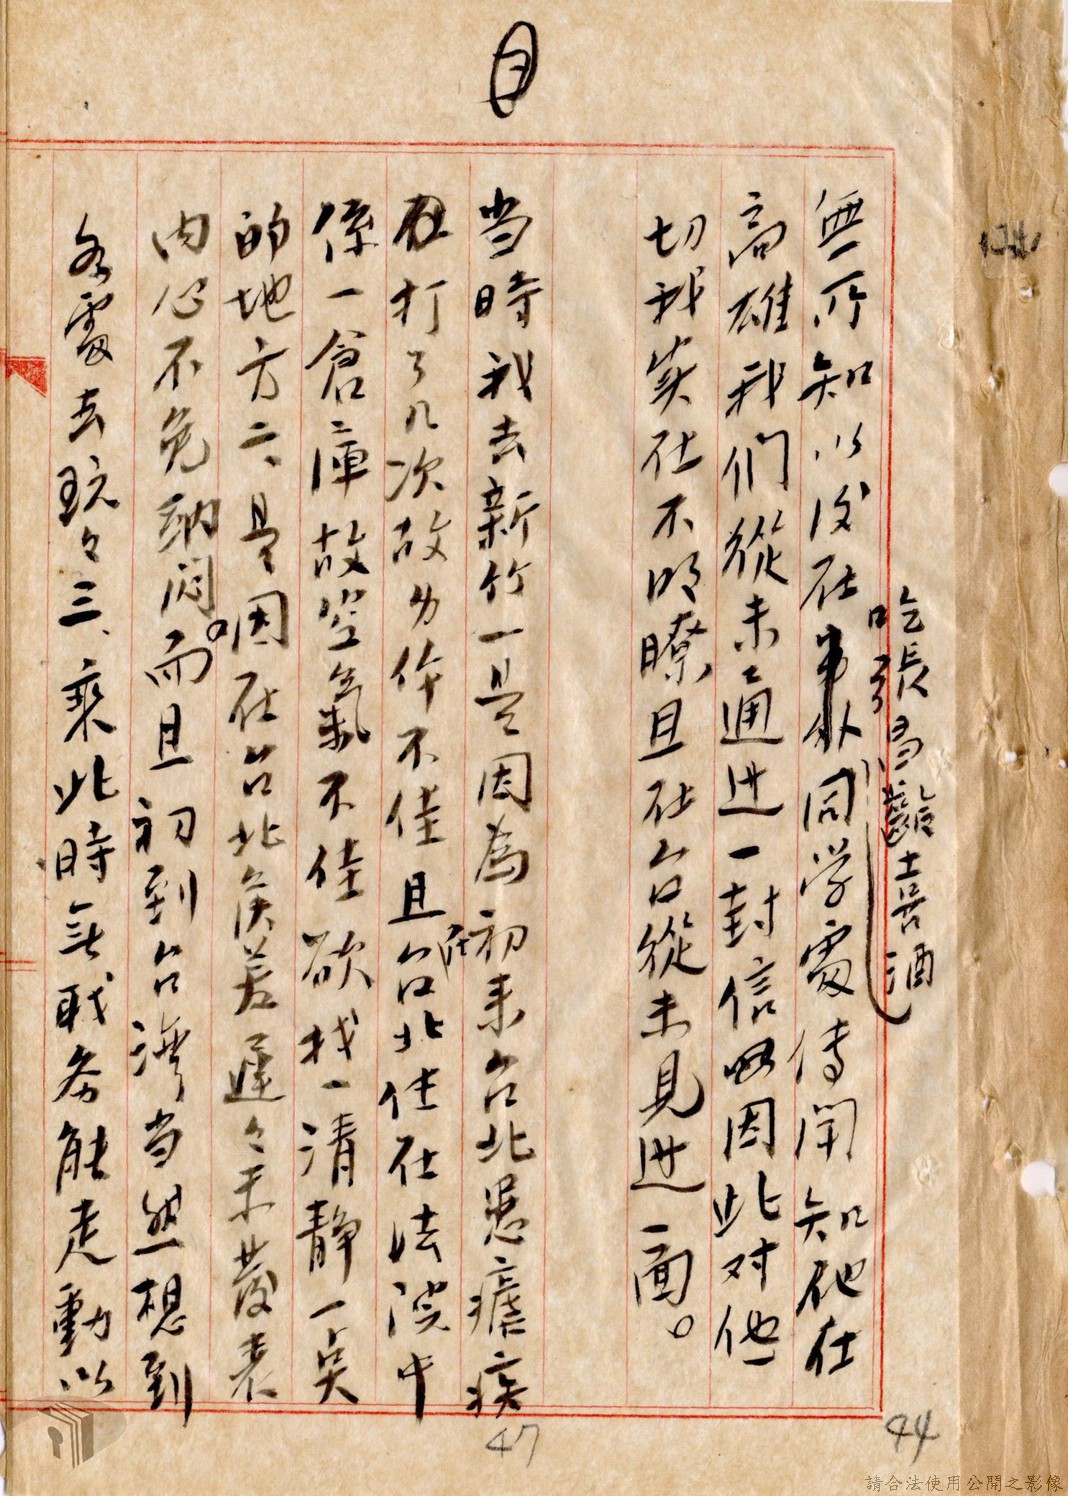 目
吃張雪齡喜酒
無所知以後在同学處傳聞知他在
高雄我們從未通进一封信毆因此对他
切我实在不明瞭且在台從未見进一面。
当時我去新竹一是因為初来台北患瘧疾
在打了几次故身体不佳且在台北住在法院中
係一倉庫故空氣不佳欲找一清静一点
的地方二、是因在台北侯差遲々未發表
内心不免納悶。而且初到台湾当然想到
各處去玩々三、乘此時無职务能走動以
44
47
請合法使用公開之影像